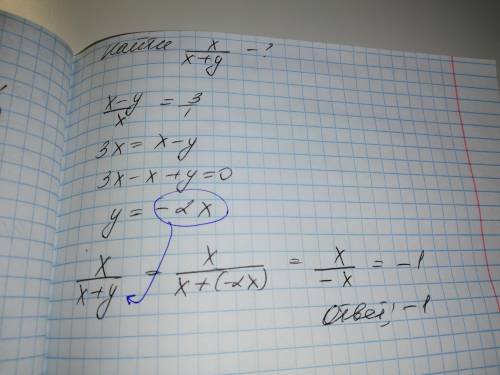 Найти x/(x+y) - ?
(x-y)/x = 3/1
3x = x-y
3x-x+y=0
y = -2x
x/(x+y) = x/(x+(-2x)) = x/(-x) = -1
Ответ: -1